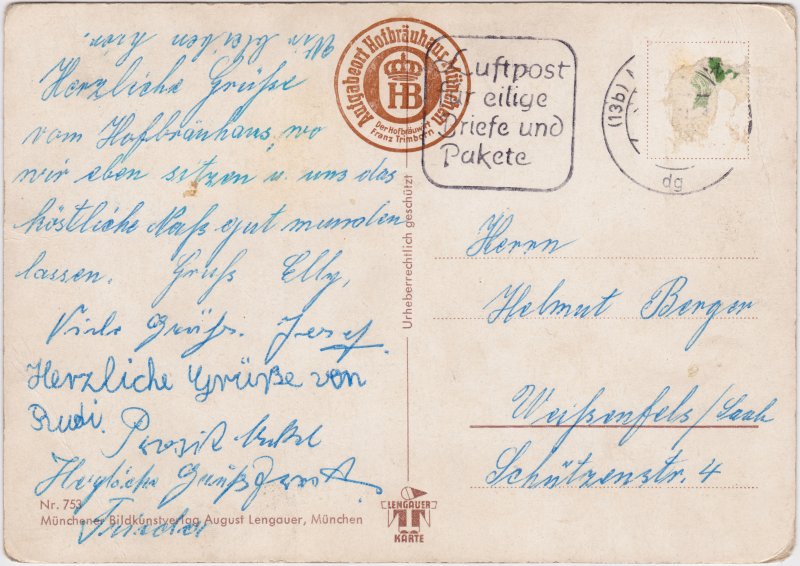 Herzliche Grüße
vom Hofbräuhaus, wo
wir eben sitzen u. uns das
köstliche Naß gut munden
lassen. Gruß Elly,
Viele Grüße. Josef.
Herzliche Grüße von
Rudi. Prosit
Grüße
Nr. 753
Münchener Bildkunstverlag August Lengauer, München
Aufgabeort Hofbräuhaus München
HB
Der Hofbräuwirt
Franz Trimborn
Luftpost
für eilige
Briefe und
Pakete
(13b)
dg
Urheberrechtlich geschützt
LENGAUER
KARTE
Herrn
Helmut Berger
Weißenfels/Saale
Schützenstr. 4